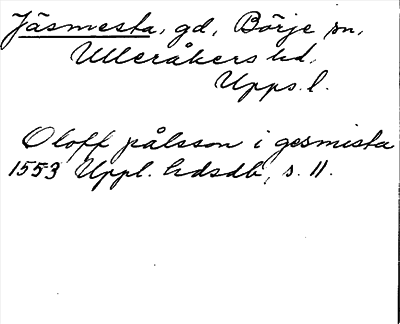 Jäsmesta, gd, Börje sn,
Ulleråkers hd,
Upps. l.
Oloff pålsson i gesmista
1553 Uppl. hdsdb, s. 11.